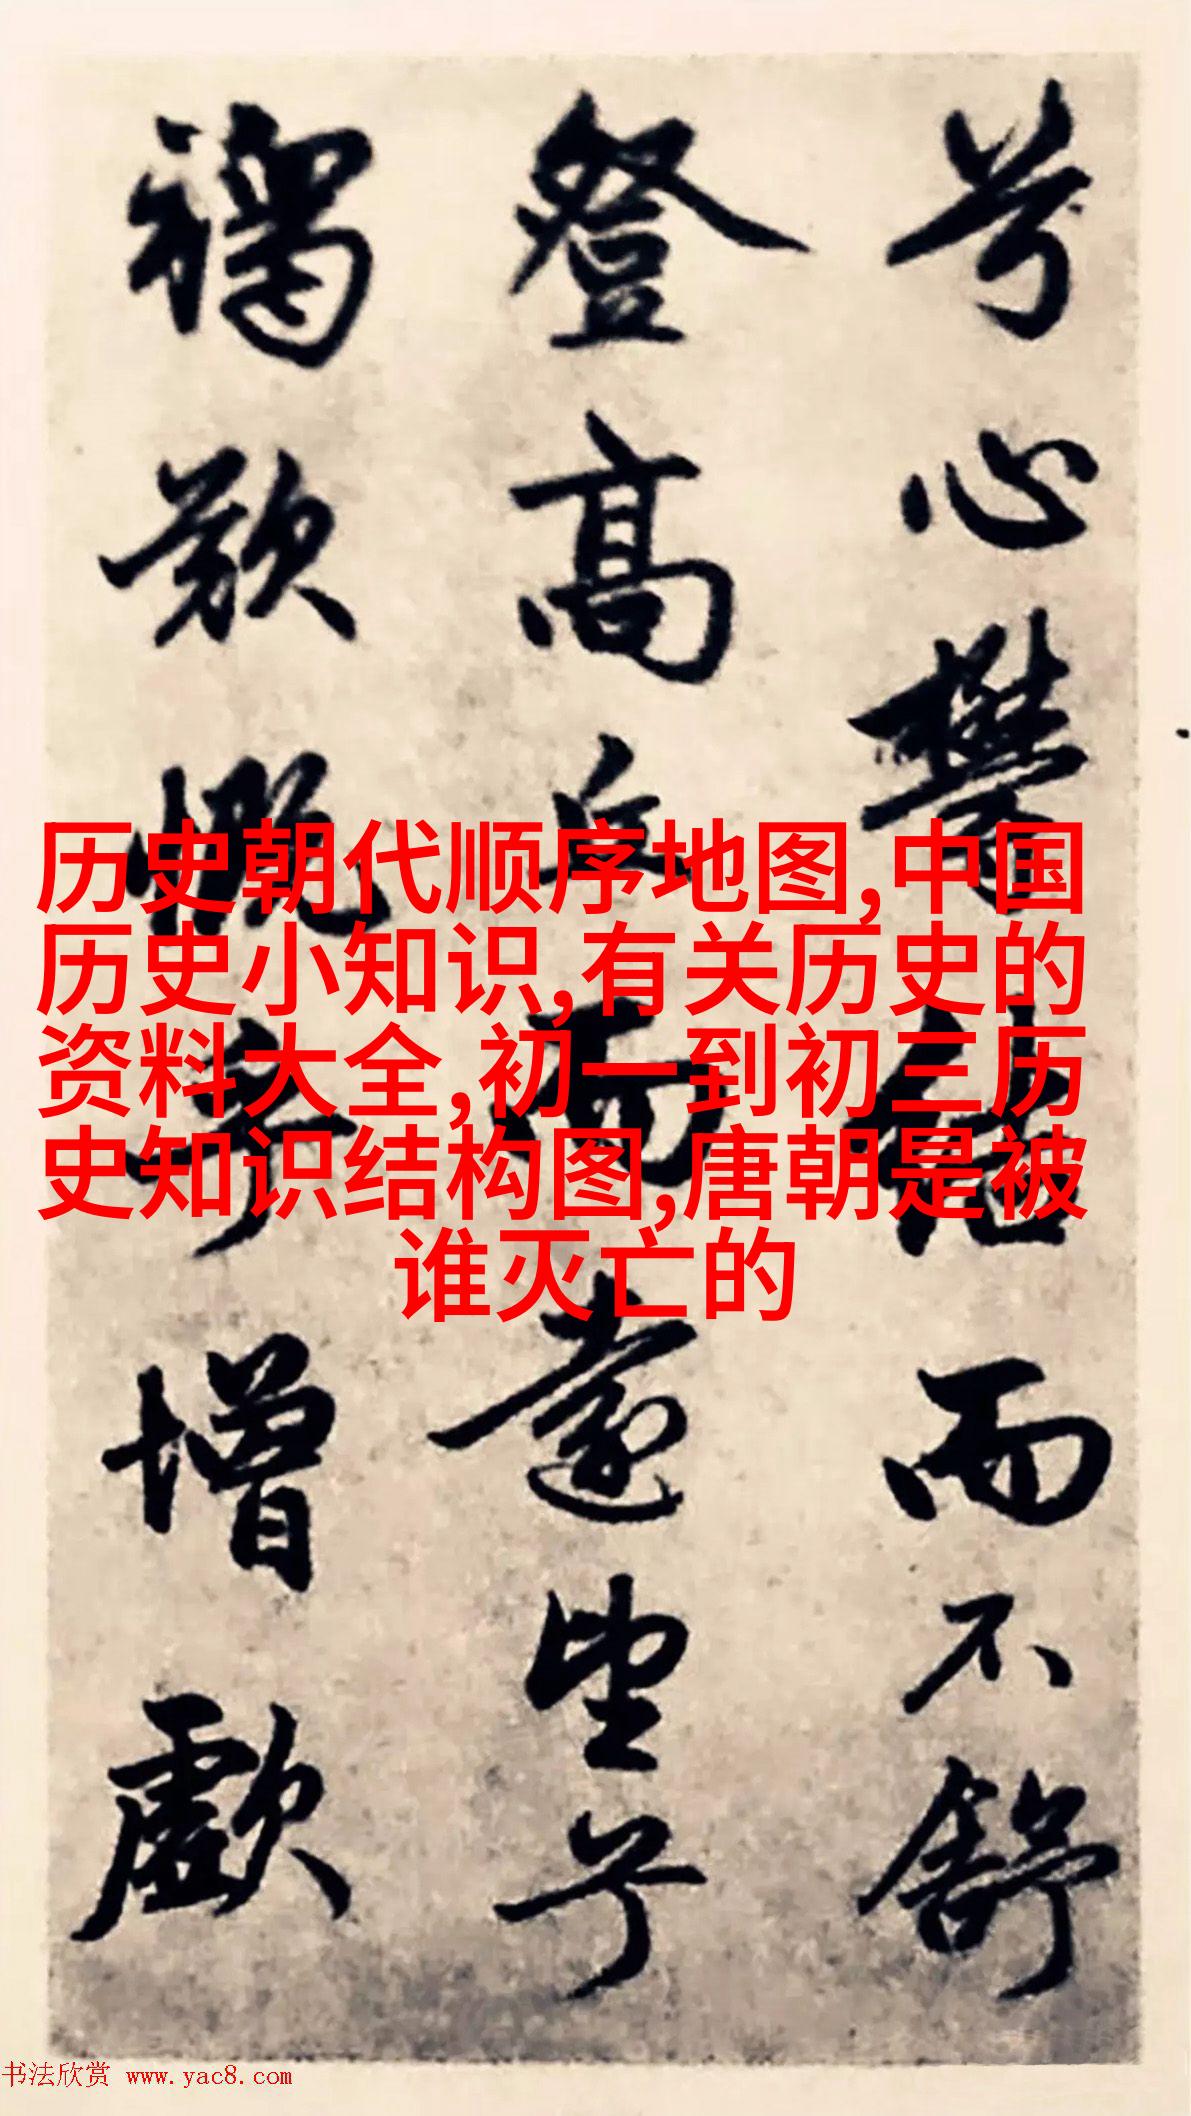 历史朝代顺序地图,中国
历史小知识,有关历史的
资料大全,初一到初三历
史知识结构图,唐朝是被
谁灭亡的
兮心欝而不舒
登高丘而遠望兮
歎慨兮增歔
书法欣赏 www.yac8.com